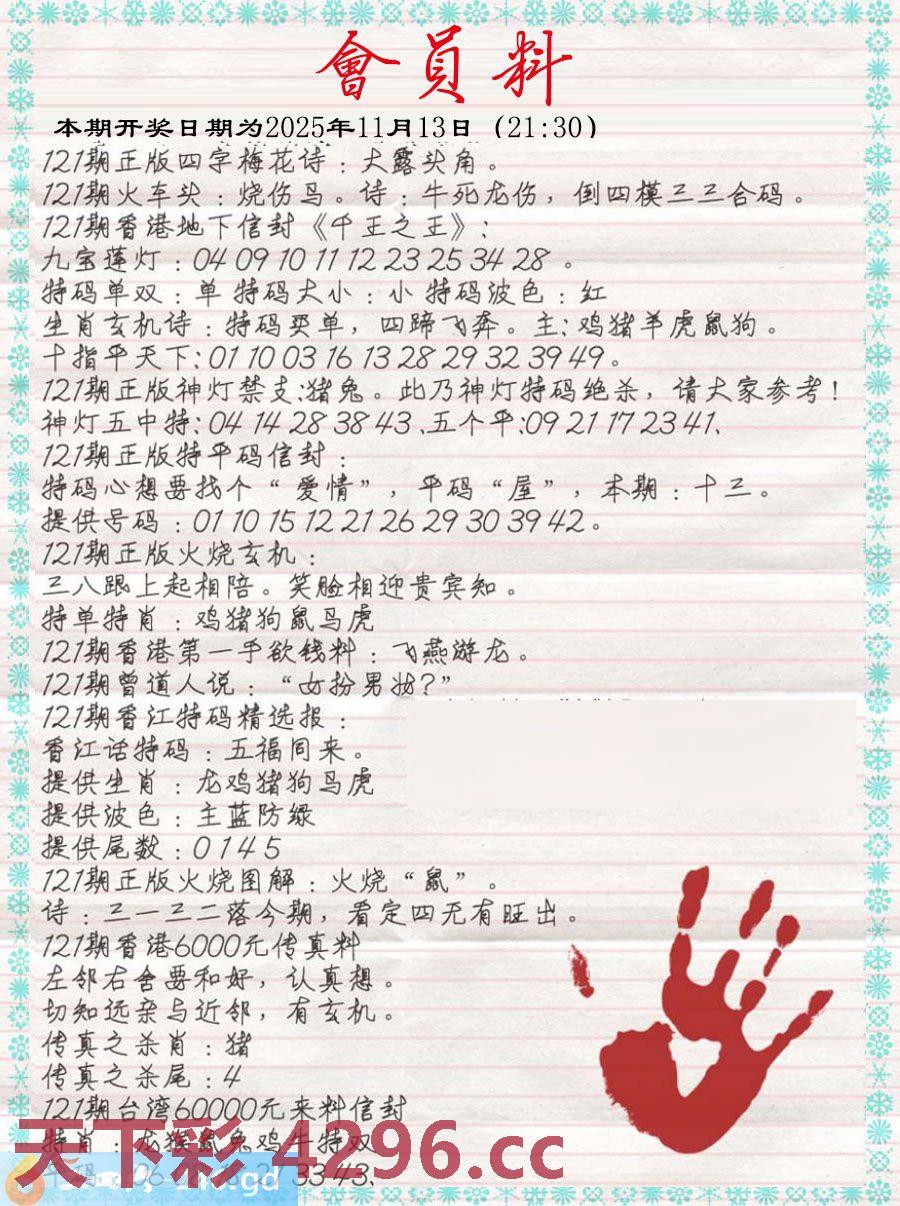 會員料
本期开奖日期为2025年11月13日（21:30）
121期正版四字梅花诗：大露头角。
121期火车头：烧伤鸟。诗：牛死龙伤，倒四模三三合码。
121期香港地下信封《千王之王》：
九宝莲灯：04 09 10 11 12 23 25 34 28 。
特码单双：单 特码大小：小 特码波色：红
生肖玄机诗：特码买单，四蹄飞奔。主：鸡猪羊虎鼠狗。
十指平天下：01 10 03 16 13 28 29 32 39 49。
121期正版神灯禁支:猪兔。此乃神灯特码绝杀，请大家参考！
神灯五中特：04 14 28 38 43、五个平:09 21 17 23 41、
121期正版特平码信封：
特码心想要找个“爱情”，平码“屋”，本期：十三。
提供号码：01 10 15 12 21 26 29 30 39 42。
121期正版火烧玄机：
三八跟上起相陪。笑脸相迎贵宾知。
特单特肖：鸡猪狗鼠马虎
121期香港第一手欲钱料：飞燕游龙。
121期曾道人说：“女扮男妆？”
121期香江特码精选报：
香江话特码：五福同来。
提供生肖：龙鸡猪狗马虎
提供波色：主蓝防绿
提供尾数：0 1 4 5
121期正版火烧图解：火烧“鼠”。
诗：三一三二落今期，看定四无有旺出。
121期香港6000元传真料
左邻右舍要和好，认真想。
切知远亲与近邻，有玄机。
传真之杀肖：猪
传真之杀尾：4
121期台湾60000元来料信封
特肖：龙猴鼠兔鸡牛特双
33 43、
天下彩4296.cc